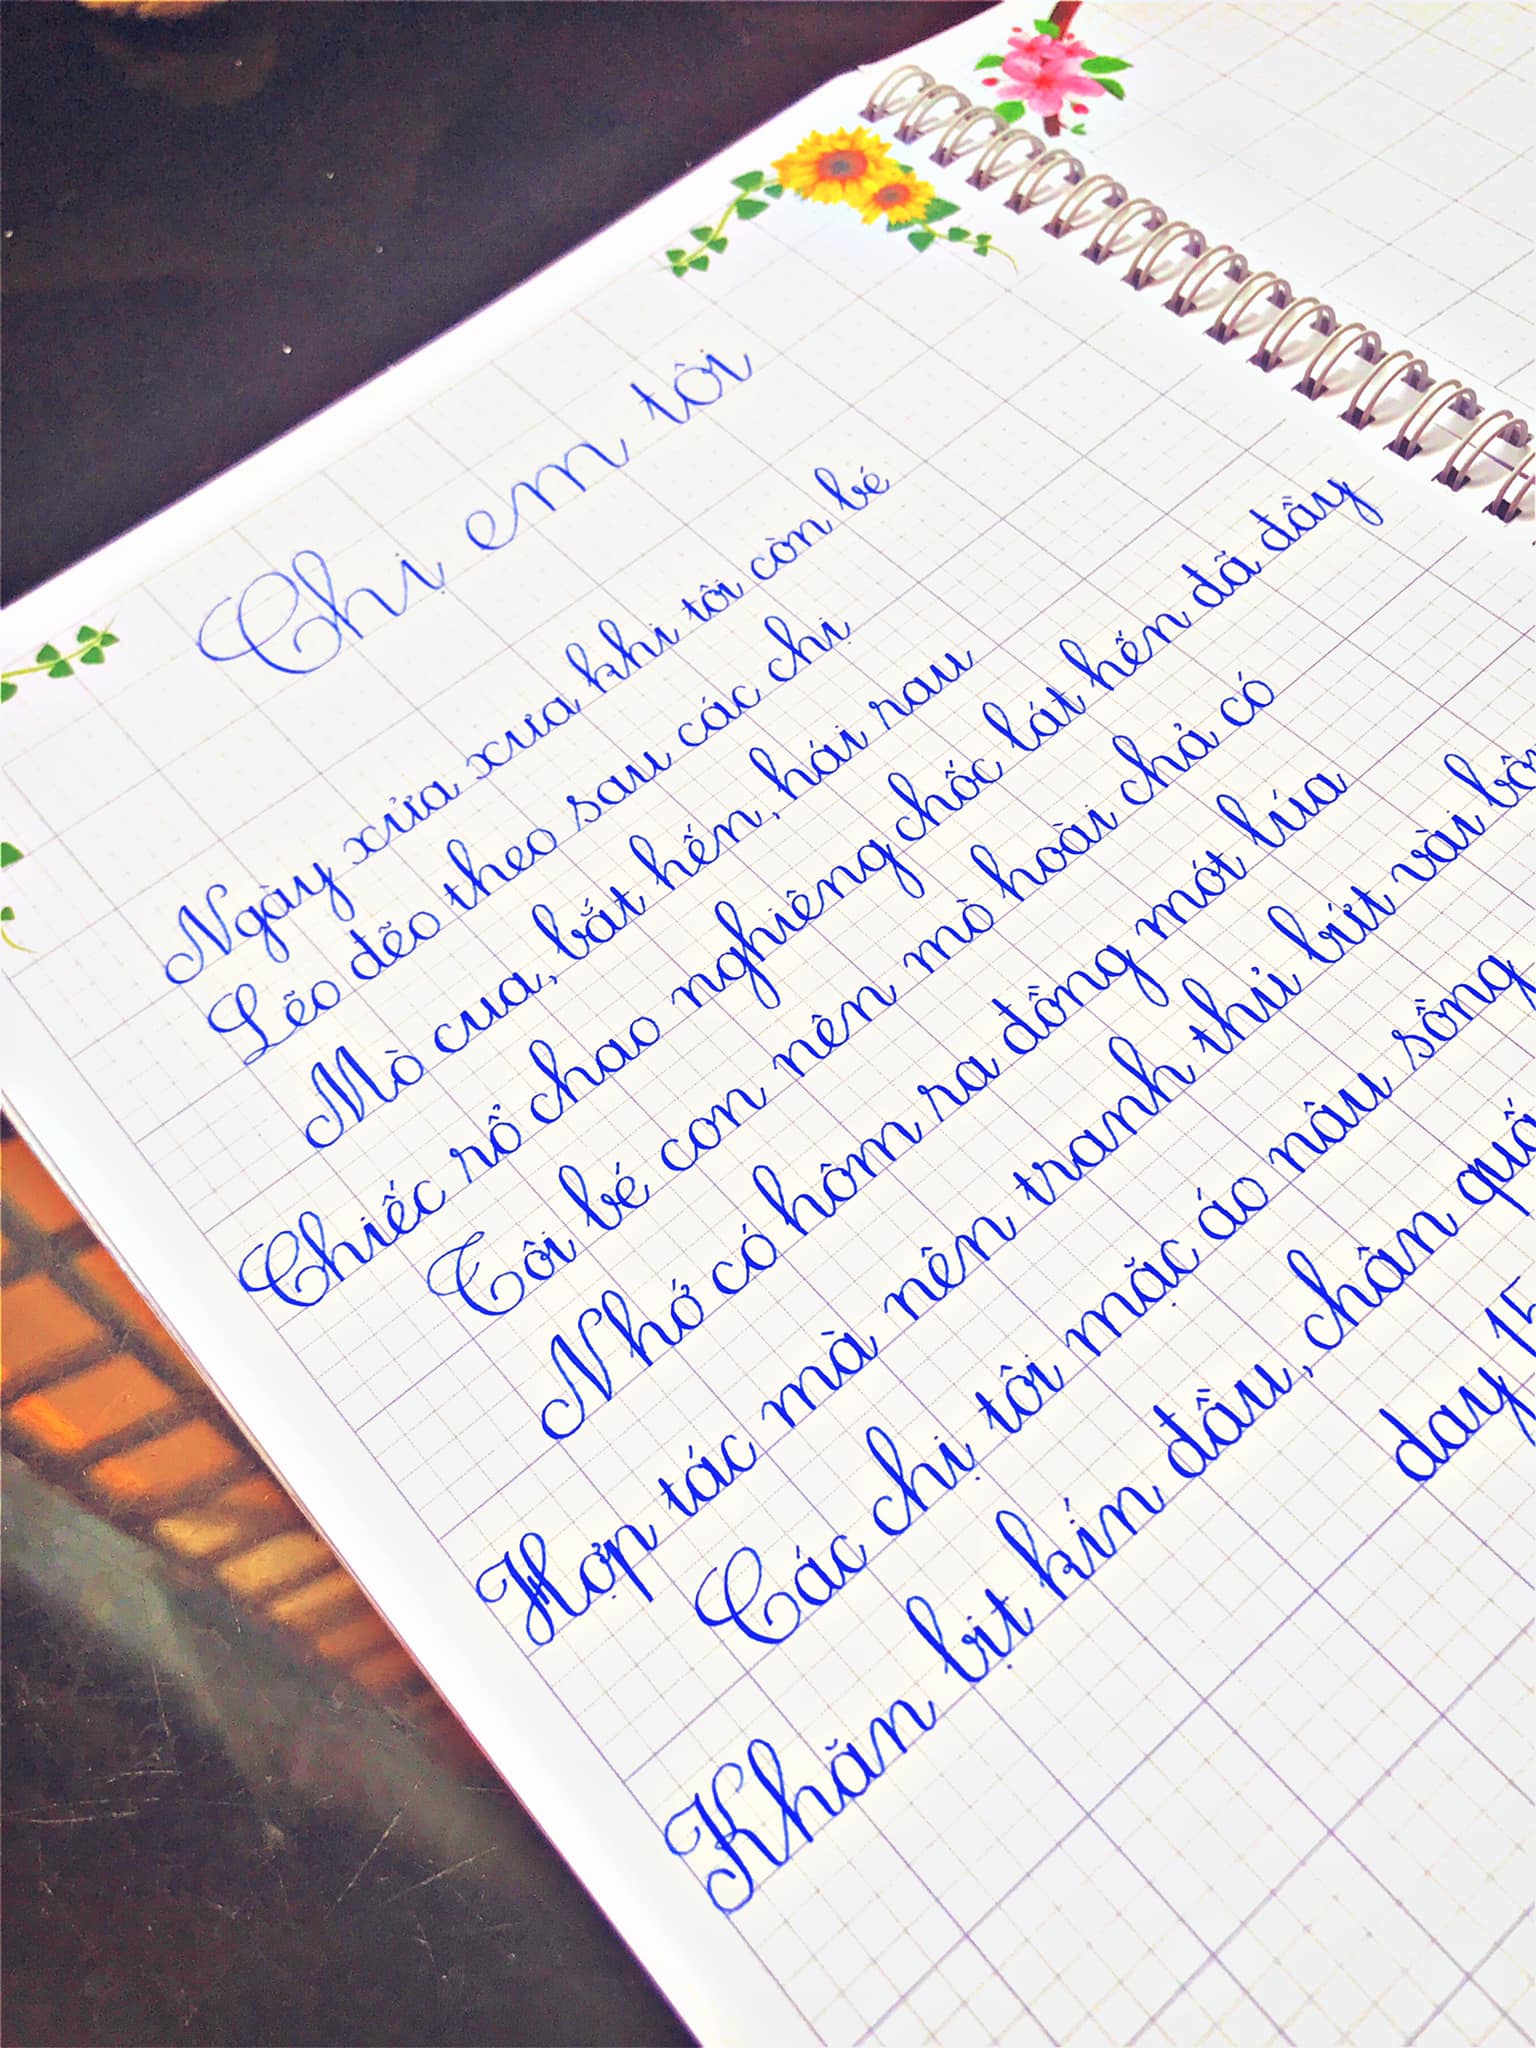 Chị em tôi
Ngày xửa xưa khi tôi còn bé
Lẽo đẽo theo sau các chị
Mò cua, bắt hến, hái rau
Chiếc rổ chao nghiêng chốc lát hến đã đầy
Tôi bé con nên mò hoài chả có
Nhớ có hôm ra đồng mót lúa
Hợp tác mà nên tranh thủ bứt vài
Các chị tôi mặc áo nâu sồng
Khăn bịt kín đầu, chân
day 15